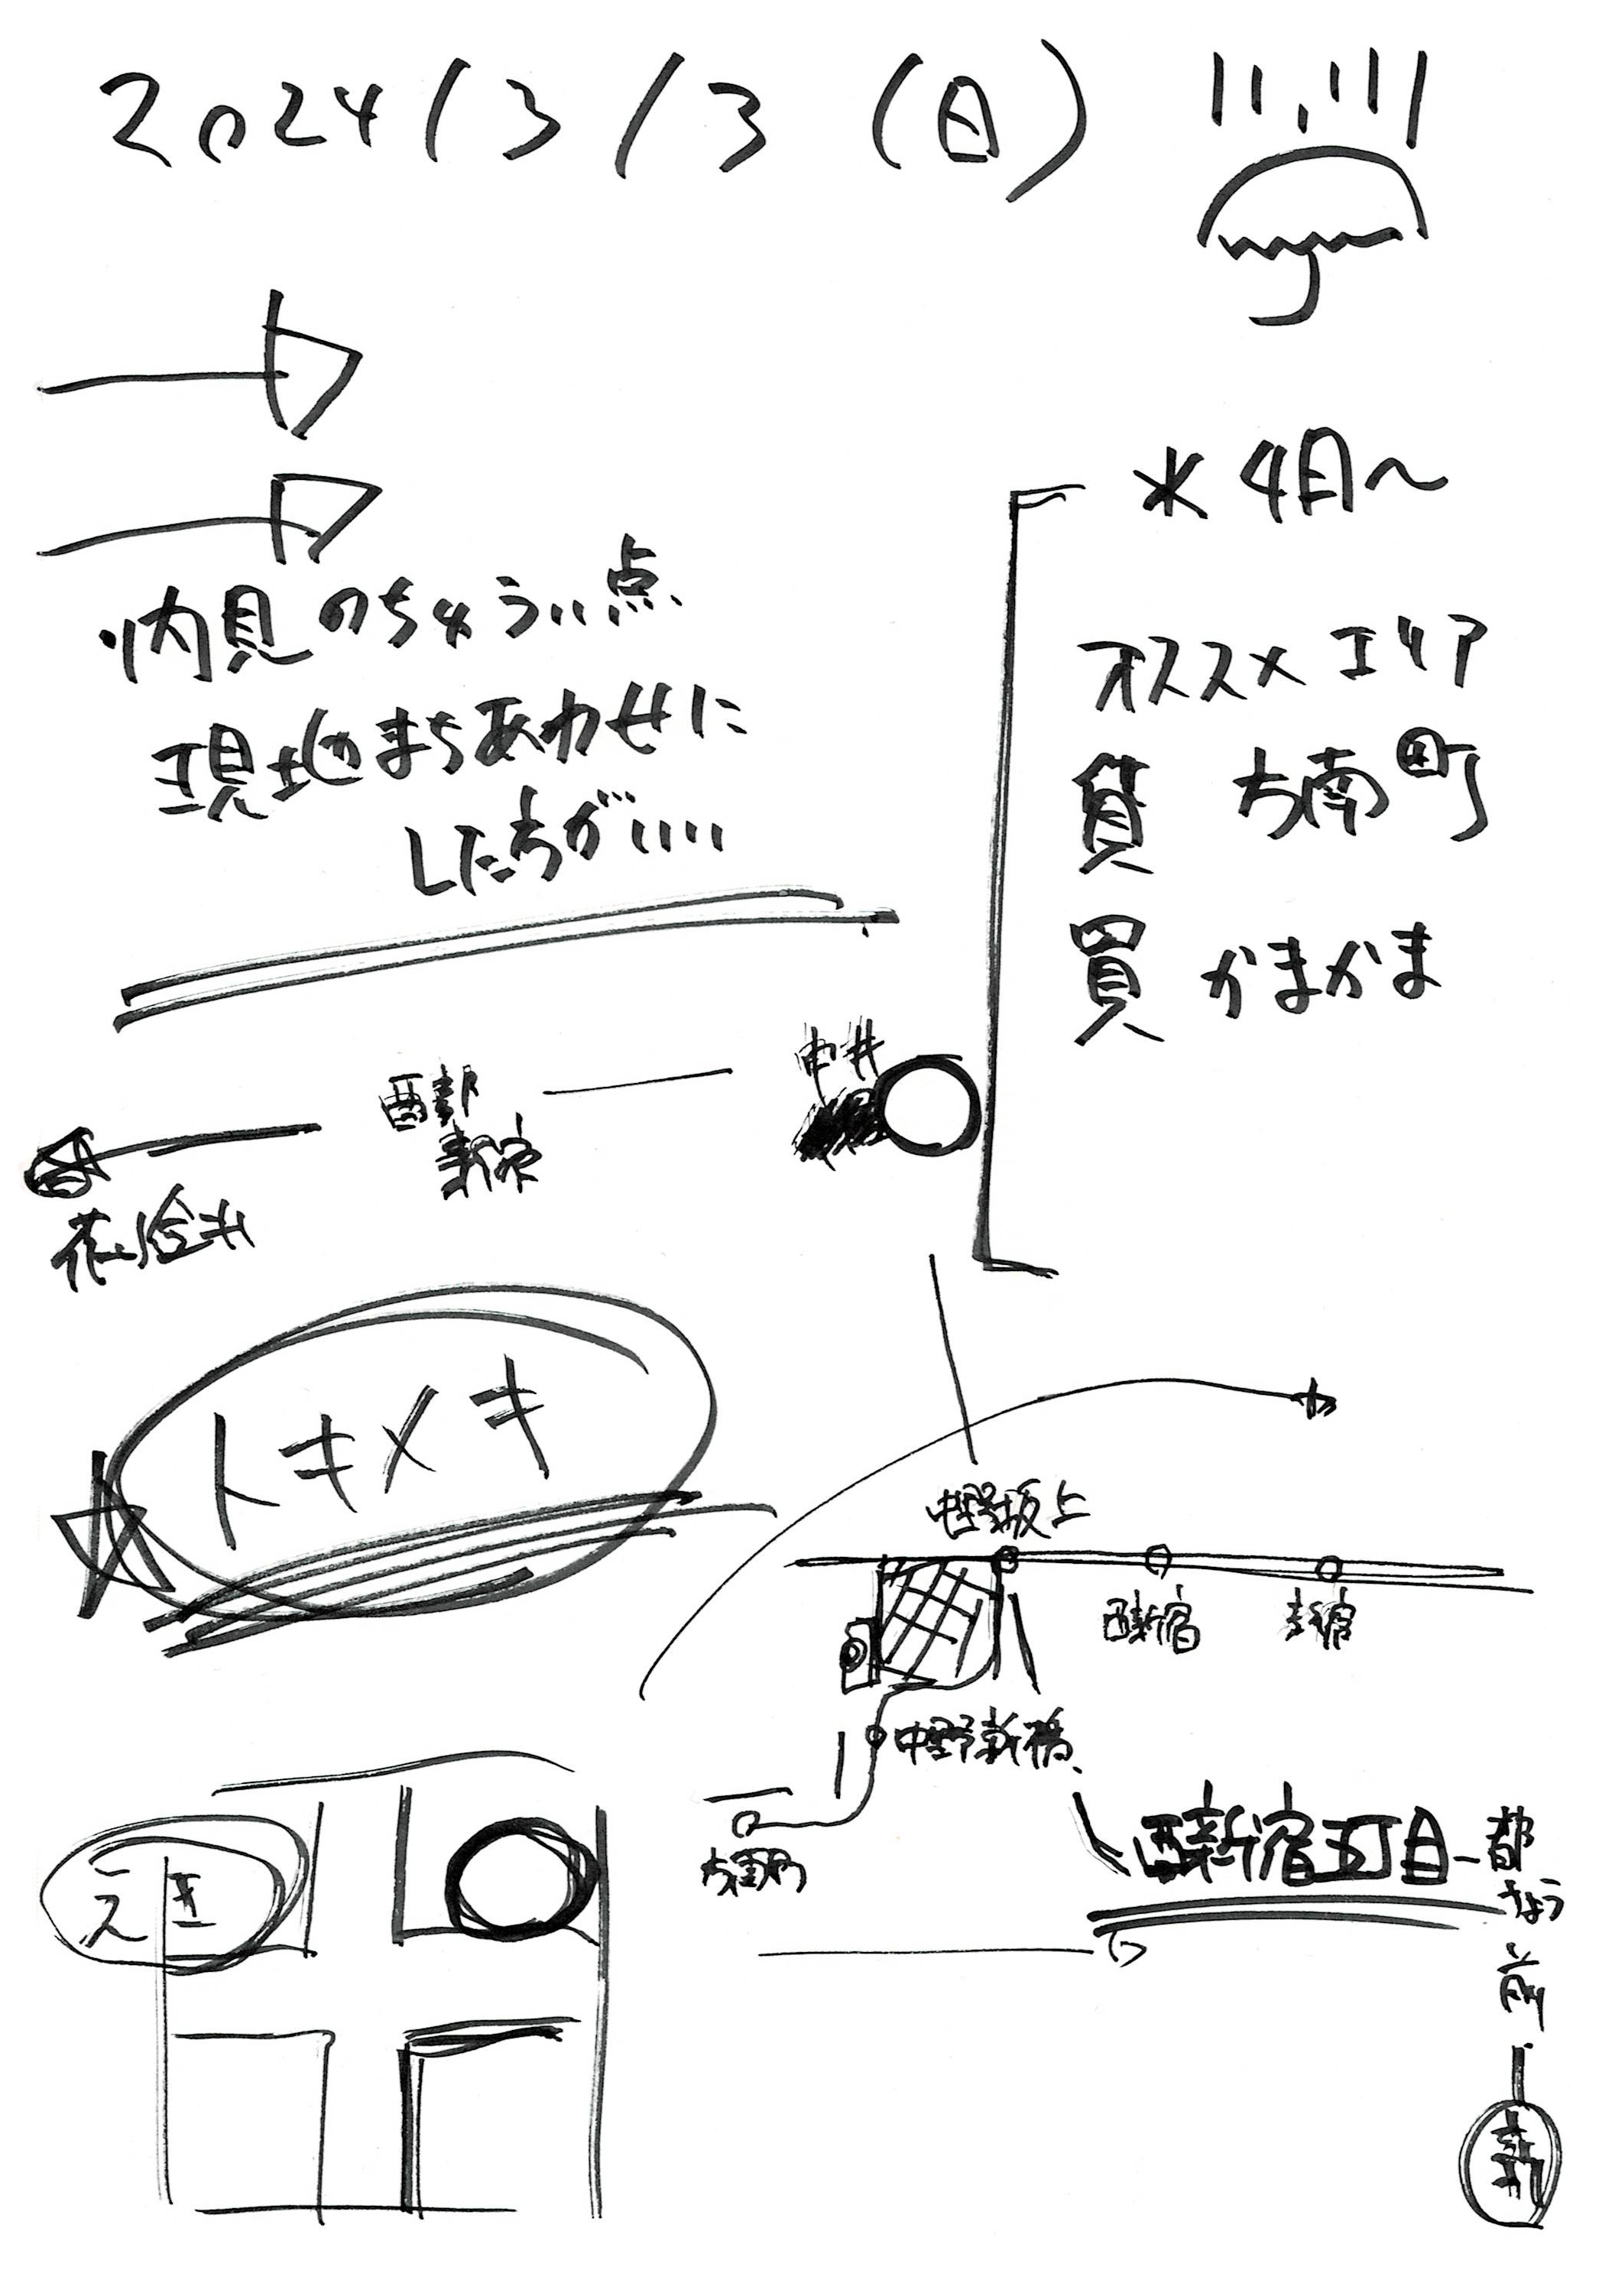 2024/3/3(日)
※4月〜
・内見のちゅうい点
現地まちあわせに
した方がいい
オススメエリア
賃 方南町
買 かまかま
中井
西部
新宿
花小金井
トキメキ
中野坂上
西新宿
新宿
中野新橋
方南町
西新宿五丁目
都
ちょう
前
新
えき